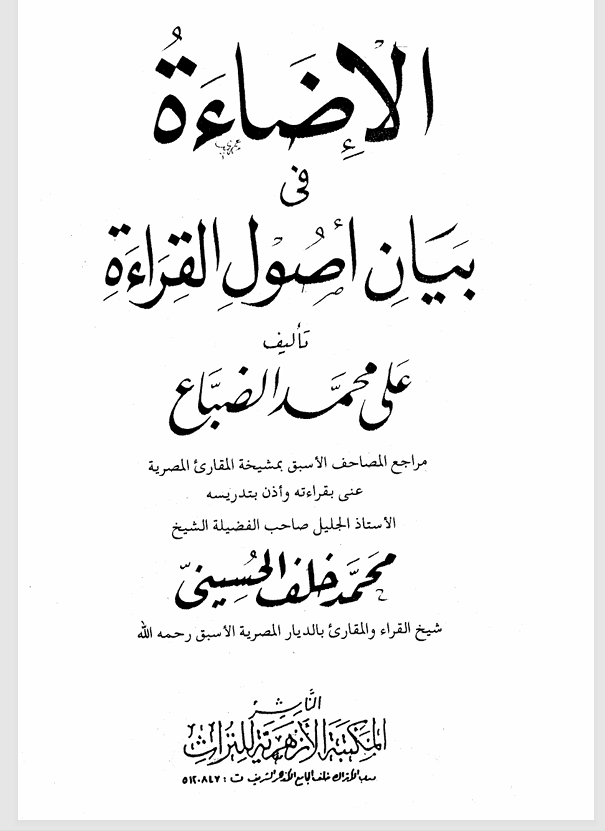 الإِضَاءَةُ
فى
بَيَانِ أُصُولِ القِرَاءَةِ
تأليف
عَلى محمَّد الضبَّاع
مراجع المصاحف الأسبق بمشيخة المقارئ المصرية
عنى بقراءته وأذن بتدريسه
الأستاذ الجليل صاحب الفضيلة الشيخ
محَمَّد خلف الحُسينىّ
شيخ القراء والمقارئ بالديار المصرية الأسبق رحمه الله
النَّاشِرُ
المكتبَة الأزهَريَة للتُراثِ
درب الأتراك خلف الجامع الأزهر الشريف ت : ٥١٢٠٨٤٧